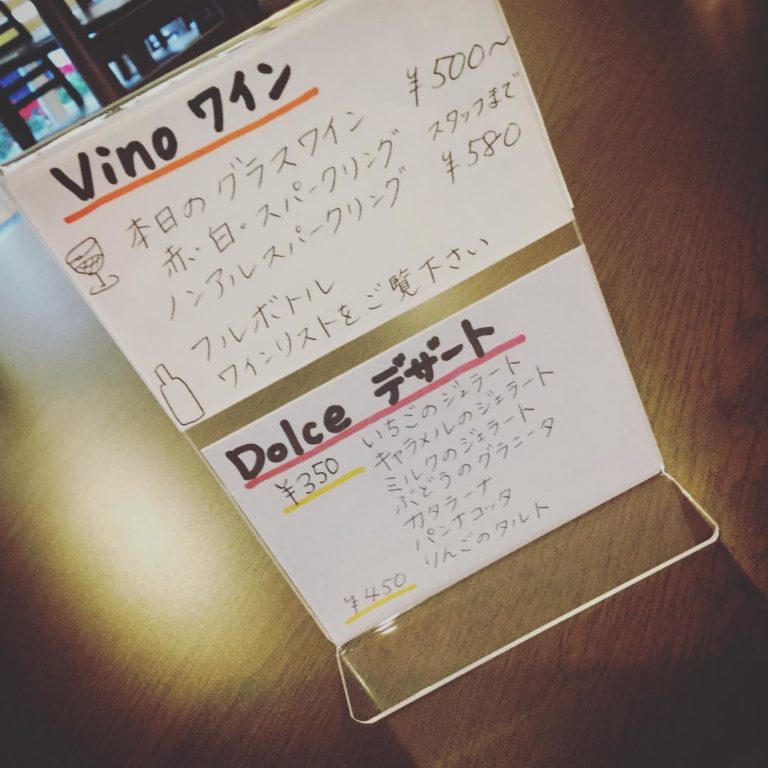 Vino ワイン
本日の グラスワイン ¥500〜
赤・白・スパークリング スタッフまで
ノンアルスパークリング ¥580
フルボトル
ワインリストをご覧下さい
Dolce デザート
¥350 いちごのジェラート
キャラメルのジェラート
ミルクのジェラート
ぶどうのグラニータ
カタラーナ
パンナコッタ
¥450 りんごのタルト